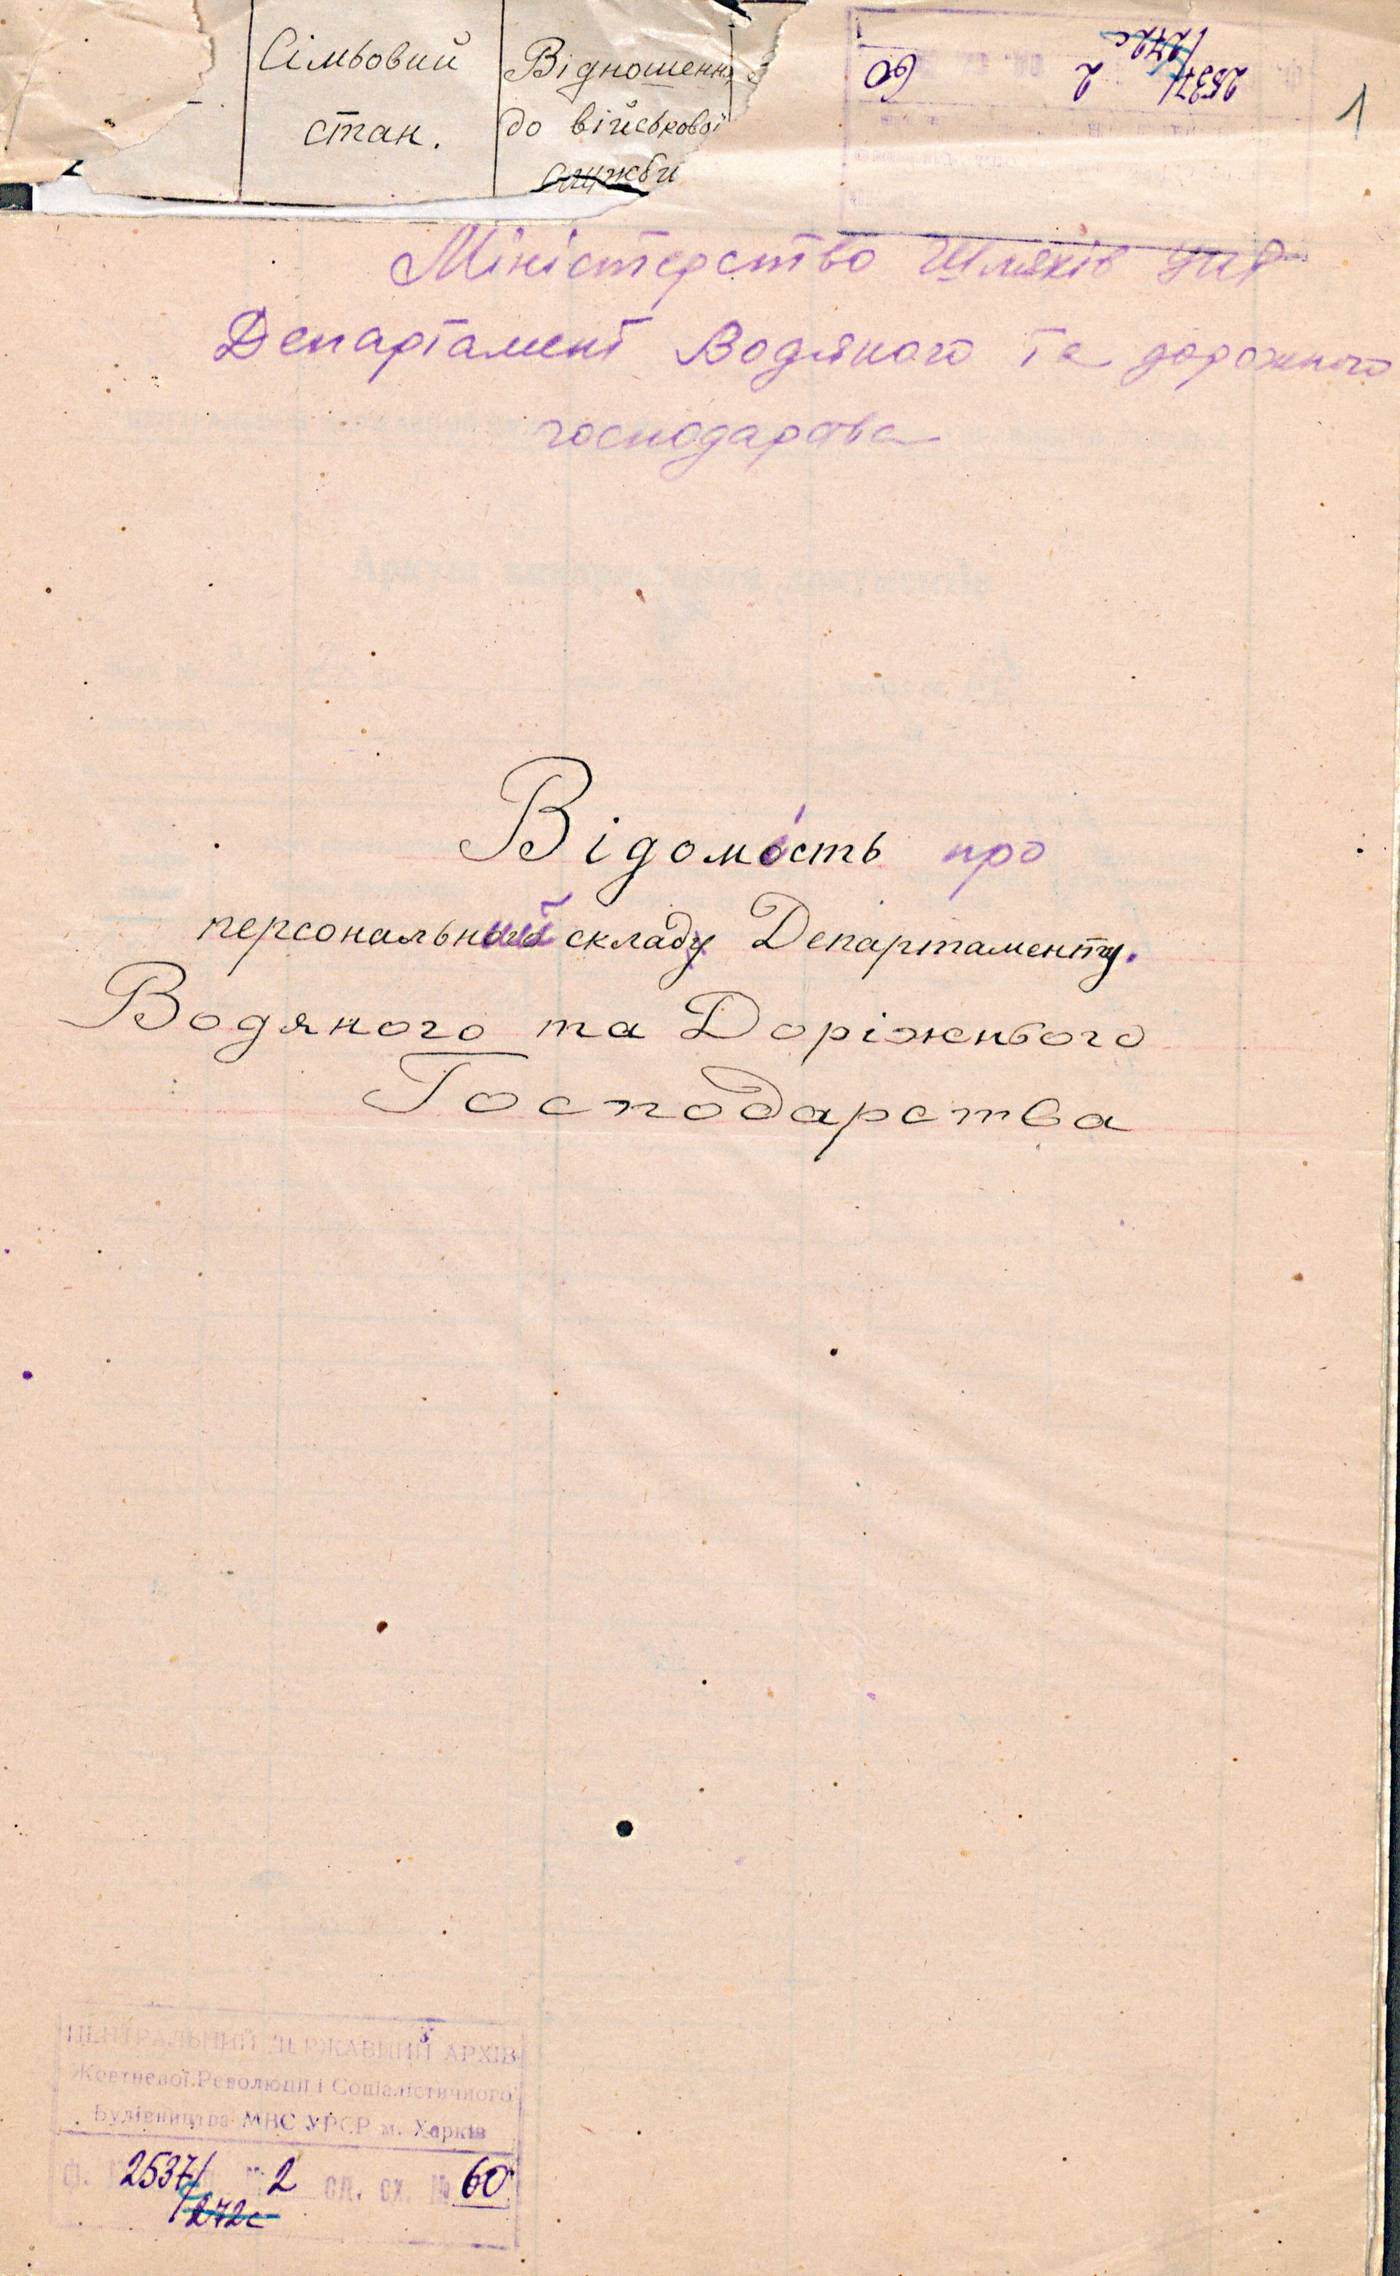 Сімьовий
стан.
Відношення
до військової
служби
2537/
/272с
2
60
1
Міністерство Шляхів УНР
Департамент Водяного та дорожного
господарства
Відомість про
персональний склад Департаменту.
Водяного та Доріжнього
Господарства
ЦЕНТРАЛЬНИЙ ДЕРЖАВНИЙ АРХІВ
Жовтневої Революції і Соціалістичного
Будівництва МВС УРСР м. Харків
Ф. 2537/ 2 од. зх. № 60
/272с